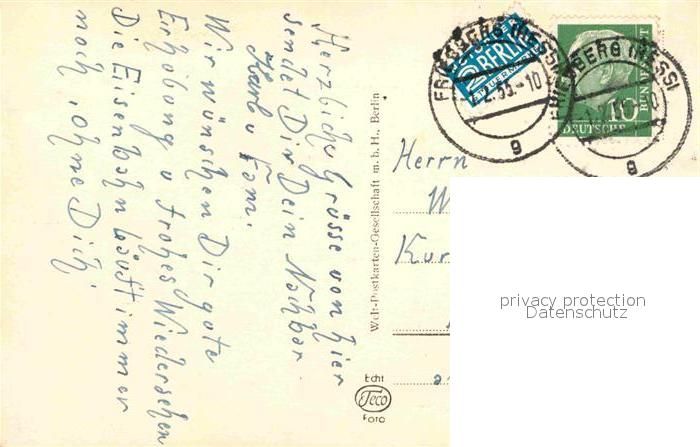 Herzliche Grüsse von hier
sendet Dir Dein Nachbar
Karl u Fam.
Wir wünschen Dir gute
Erholung u frohes Wiedersehen
Die Eisenbahn läuft immer
noch, ohne Dich.
Welt-Postkarten-Gesellschaft m. b. H., Berlin
Echt
Teco
Foto
FRIEDBERG (HESS)
2.55-10
g
2 BERLIN
STEUERMARKE
FRIEDBERG (HESS)
g
10
DEUTSCHE BUNDESPOST
Herrn
W
Kur
privacy protection
Datenschutz